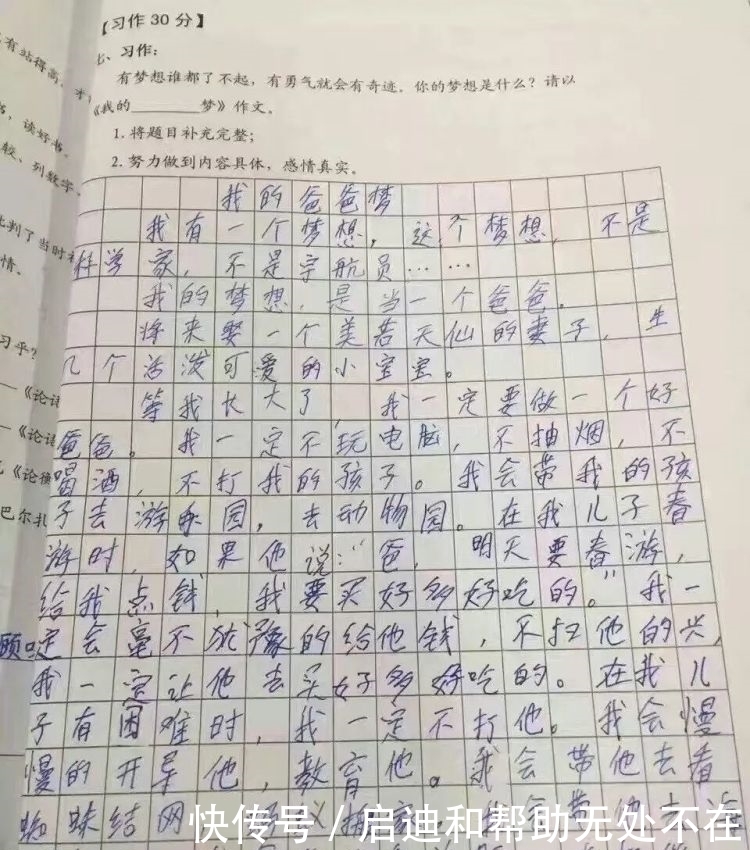 【习作 30 分】
七、习作：
有梦想谁都了不起，有勇气就会有奇迹。你的梦想是什么？请以
《我的______梦》作文。
1. 将题目补充完整；
2. 努力做到内容具体，感情真实。
我的爸爸梦
我有一个梦想，这个梦想，不是
科学家，不是宇航员……
我的梦想，是当一个爸爸。
将来娶一个美若天仙的妻子，生
几个活泼可爱的小宝宝。
等我长大了，我一定要做一个好
爸爸。我一定不玩电脑，不抽烟，不
喝酒，不打我的孩子。我会带我的孩
子去游乐园，去动物园。在我儿子春
游时，如果他说："爸，明天要春游，
给我点钱，我要买好多好吃的。"我一
定会毫不犹豫的给他钱，不扫他的兴，
我一定让他去买好多好吃的。在我儿
子有困难时，我一定不打他。我会慢
慢的开导他，教育他。我会带他去看
蜘蛛结网
快传号 / 启迪和帮助无处不在
有站得高，才
读好书。
较、列数字、
批判了当时
情。
习乎？
——《论语
——《论语
《论衡
巴尔扎